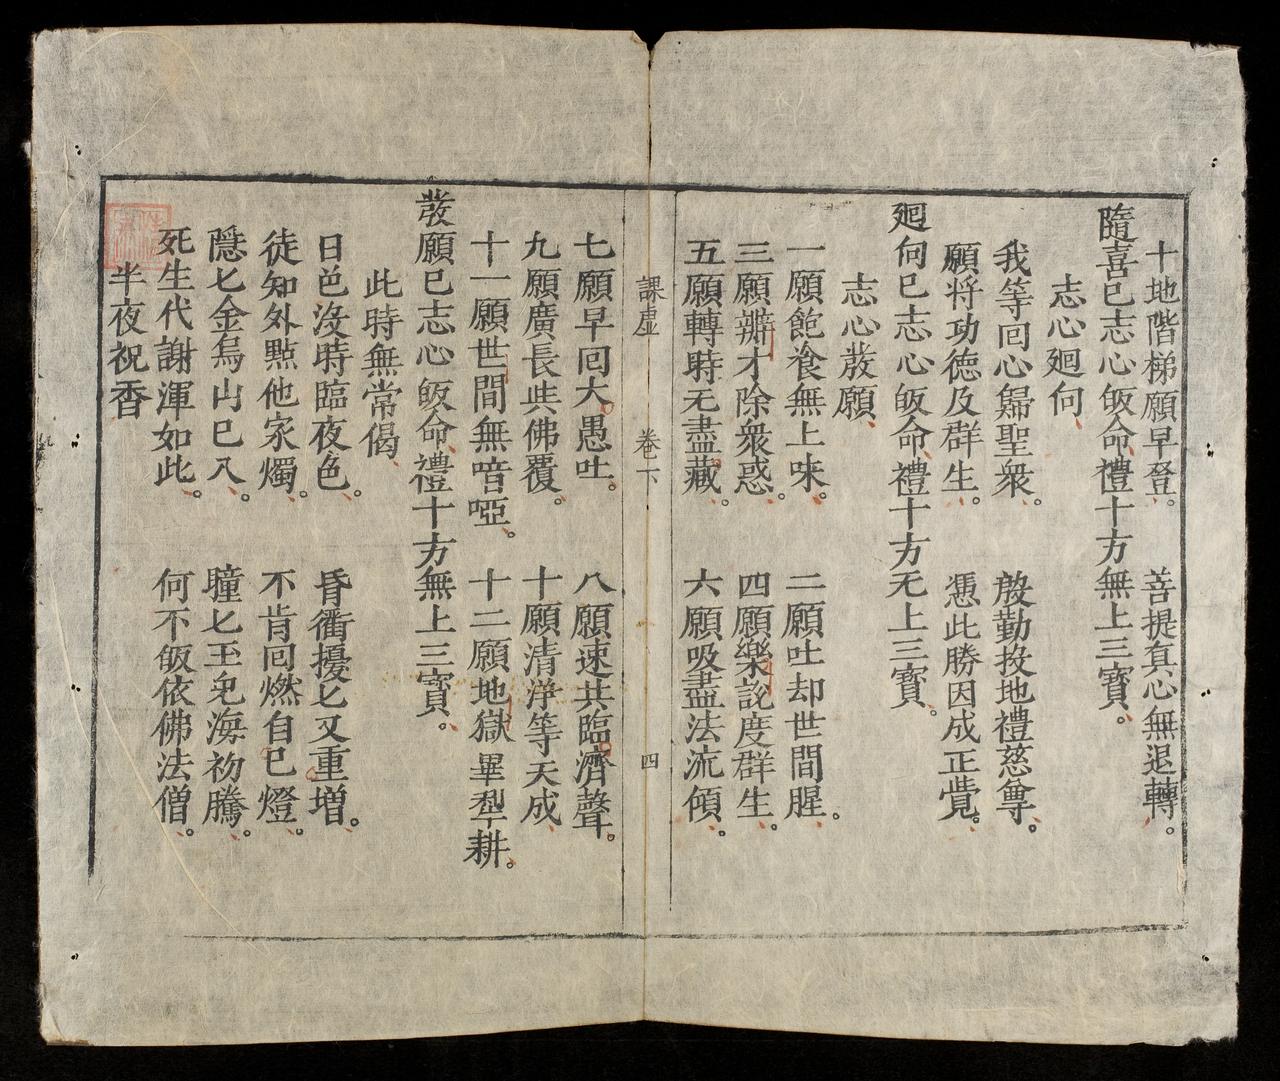 十地階梯願早登。菩提真心無退轉。
隨喜已志心皈命、禮十方無上三寶。
志心廻向、
我等回心歸聖衆。慇勤投地禮慈尊。
願将功德及群生。憑此勝因成正覺。
廻向已志心皈命、禮十方无上三寶。
志心𤼵願、
一願飽飡無上味。二願吐却世間腥。
三願辯才除衆惑。四願樂說度群生。
五願轉時无盡藏。六願吸盡法流傾。
課虚 卷下 四
七願早囘大愚吐。八願速共臨濟聲。
九願廣長㒷佛覆。十願清淨等天成、
十一願世間無喑啞。十二願地獄畢犁耕。
𤼵願已志心皈命、禮十方無上三寶。
此時無常偈、
日邑没時臨夜色。昏衢擾匕又重増。
徒知外㸃他家燭。不肯回燃自已燈。
隱匕金烏山已入。瞳匕玉兔海初騰。
死生代謝渾如此。何不皈依佛法僧。
半夜祝香